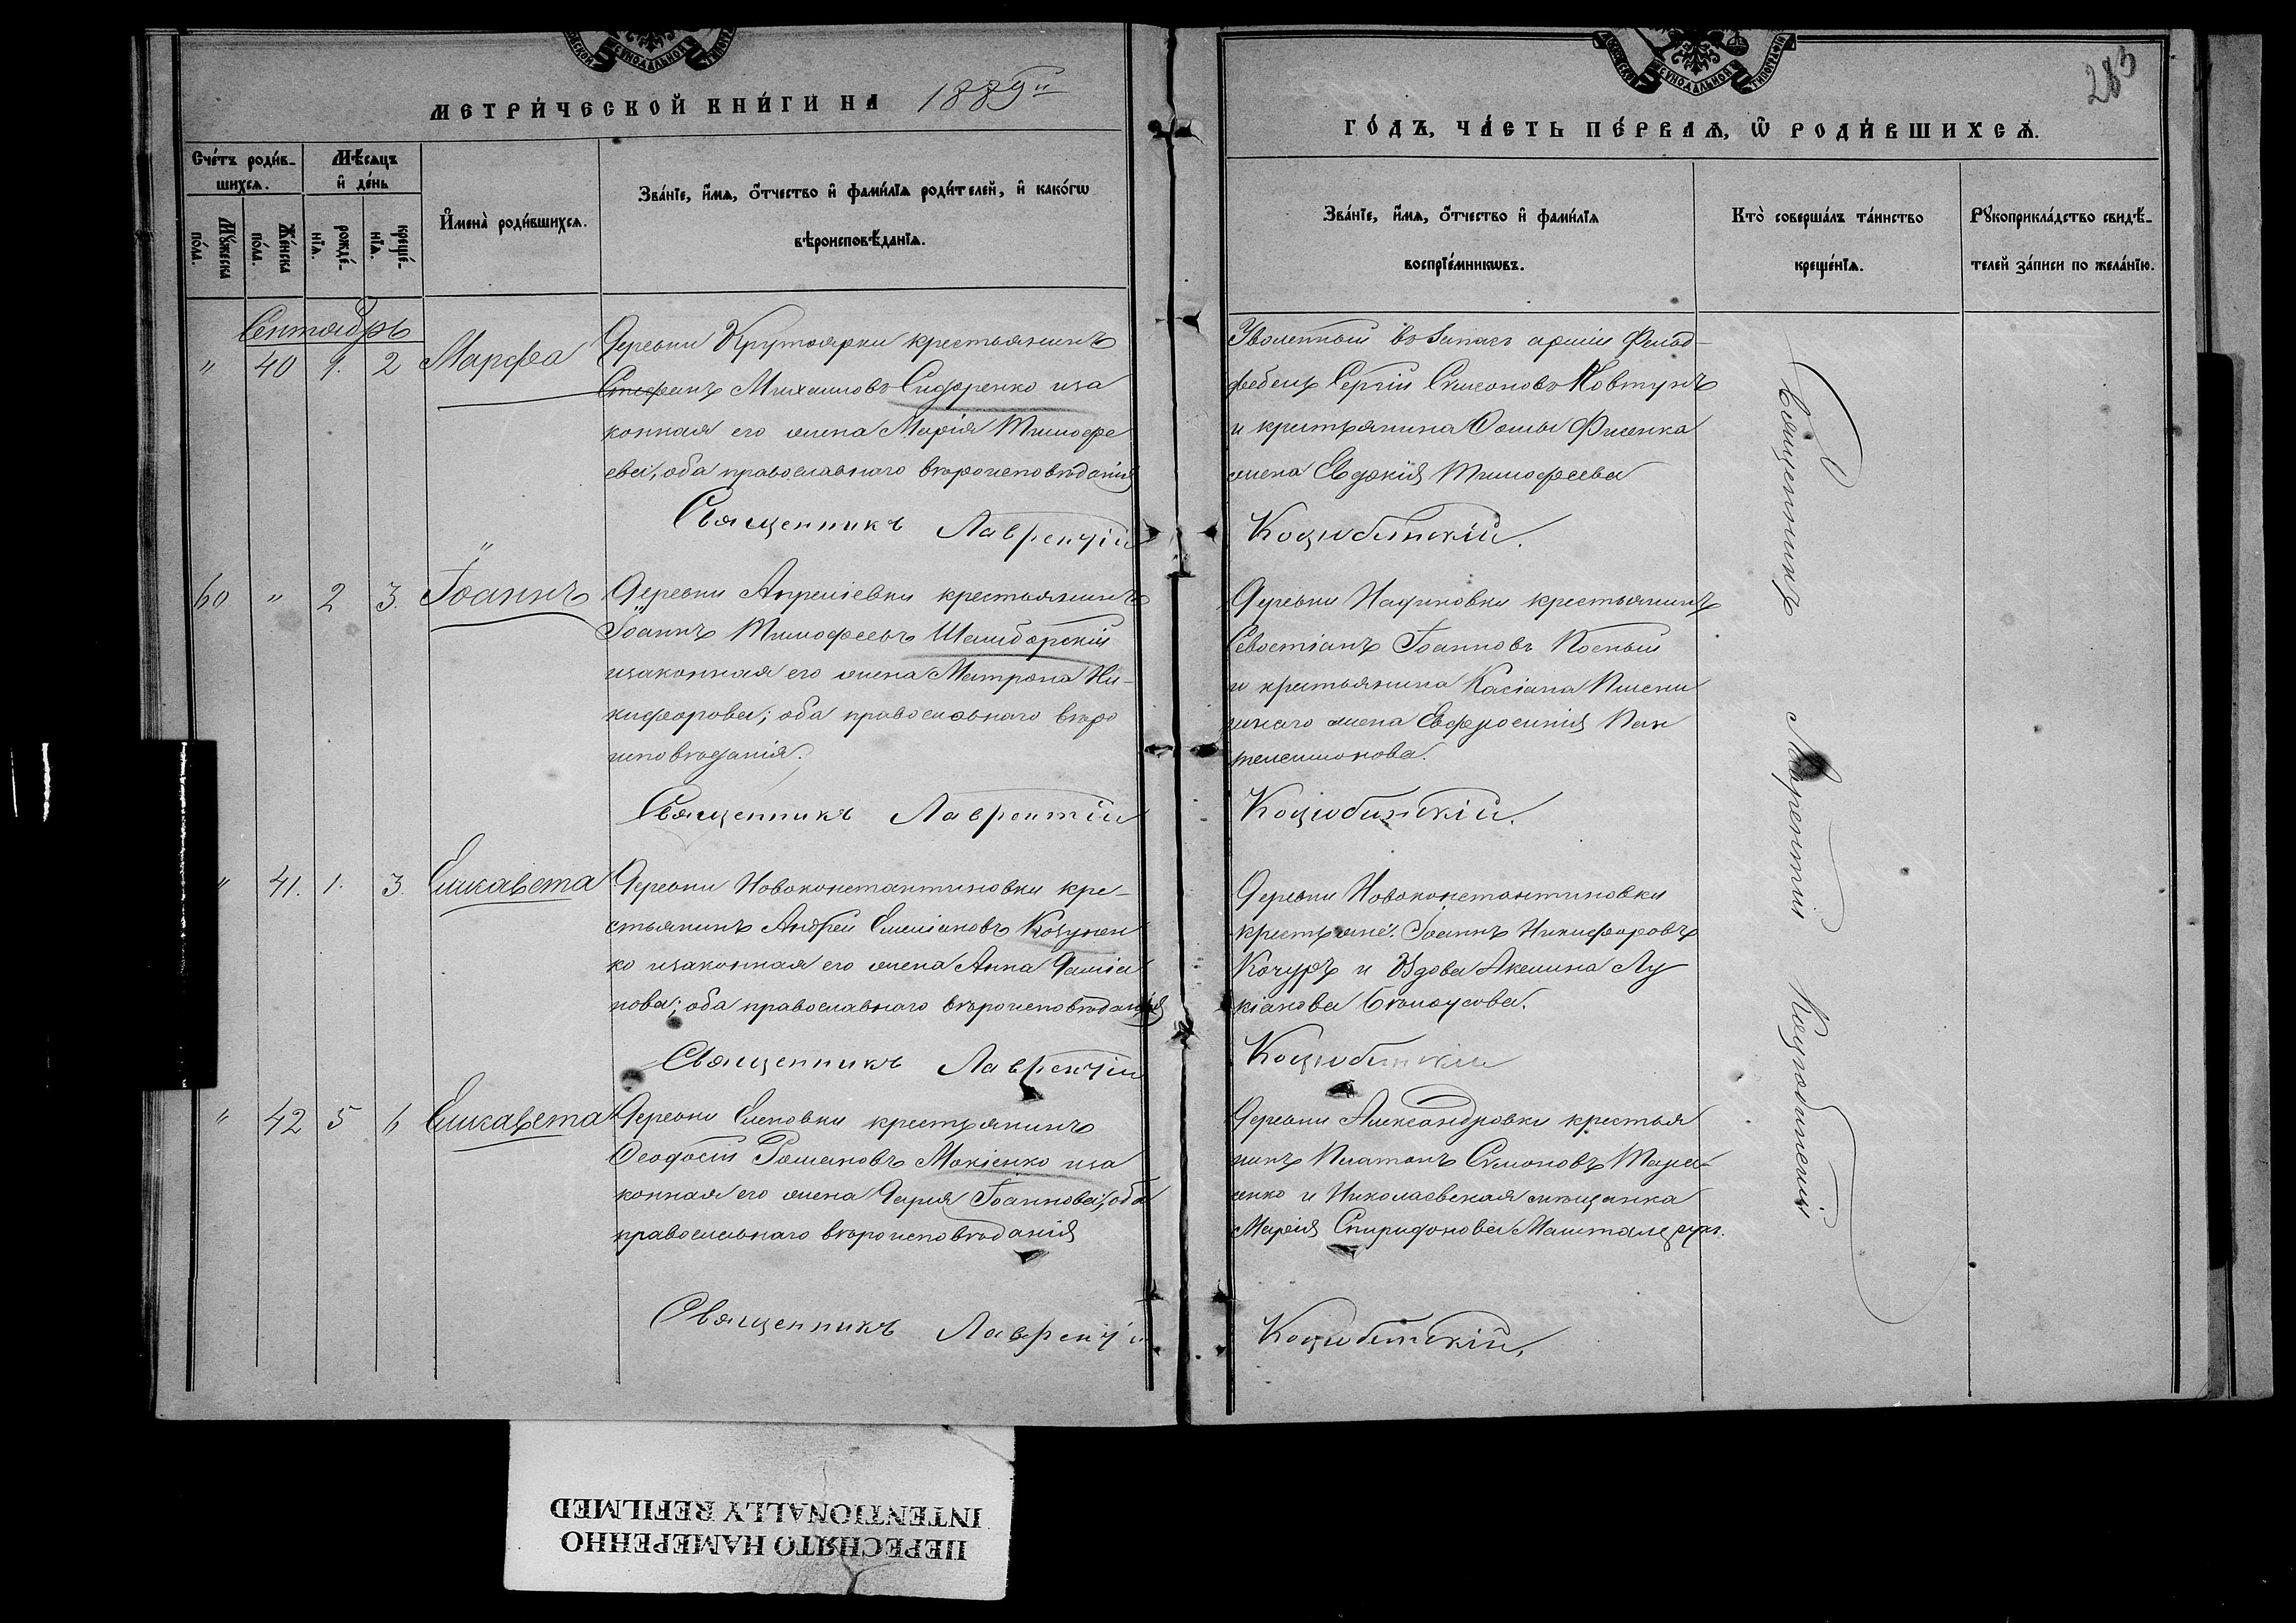 МЕТРИ́ЧЕСКОЙ КНИ́ГИ НА 1889й
ГО́ДЪ, ЧА́СТЬ ПЕ́РВАѦ, Ѿ РОДИ́ВШИХСѦ.
283
Сче́тъ роди́в-
шихсѧ.
Мѣ́сѧцъ
и҆ де́нь
Мꙋ́жеска
по́ла.
Же́нска
по́ла.
рожде́-
нїѧ.
креще́-
нїѧ.
И҆мена̀ роди́вшихсѧ.
Зва́нїе, и҆́мѧ, ѻ҆́тчество и҆ фами́лїѧ роди́телей, и҆ како́гѡ
вѣроисповѣ́данїѧ.
Зва́нїе, и҆́мѧ, ѻ҆́тчество и҆ фами́лїѧ
воспрїе́мникѡвъ.
Кто̀ соверша́лъ та́инство
креще́нїѧ.
Рꙋкоприкла́дство свидѣ́-
телей за́писи по жела́нїю.
Сентябрь
" 40 1. 2 Марфа
Деревни Крутоярки крестьянинъ
Стефанъ Михаиловъ Сидоренко иза
конная его жена Марія Тимофе
ева, оба православнаго вѣроисповѣданія
Священникъ Лаврентій
Уволенный въ запасъ арміи Фельд-
фебель Сергій Симеоновъ Ковтунъ
и крестьянина Фомы Фисенка
жена Евдокія Тимофеева
Коцюбинскій.
60 " 2 3. Іоаннъ
Деревни Апрелевки крестьянинъ
Іоаннъ Тимофеевъ Шамборскій
изаконная его жена Матрона Ни-
кифорова; оба православнаго вѣро
исповѣданія.
Священникъ Лаврентій
Деревни Надиновки крестьянинъ
Севостіанъ Іоанновъ Косный
и крестьянина Касіана Пшени
чнаго жена Евфросинія Пан
телеимонова.
Коцюбинскій.
" 41. 1. 3. Елисавета
Деревни Новоконстантиновки кре-
стьянинъ Андрей Емеліановъ Коцупен
ко изаконная его жена Анна Даміа
нова; оба православнаго вѣроисповѣданія
Священникъ Лаврентій
Деревни Новоконстантиновки
крестьяне: Іоаннъ Никифоровъ
Кочуръ и Вдова Акелина Лу
кіанова Бѣлоусова.
Коцюбинскій
" 42 5 6 Елисавета
Деревни Еленовки крестьянинъ
Феодосій Романовъ Мокіенко иза
конная его жена Дарія Іоаннова; оба
православнаго вѣроисповѣданія
Священникъ Лаврентій
Деревни Александровки крестья
нинъ Платонъ Симоновъ Тара-
сенко и Николаевская мѣщанка
Марія Спиридонова
Коцюбинскій.
Священникъ Лаврентій Коцюбинскій
ПЕРЕСНЯТО НАМЕРЕННО
INTENTIONALLY REFILMED